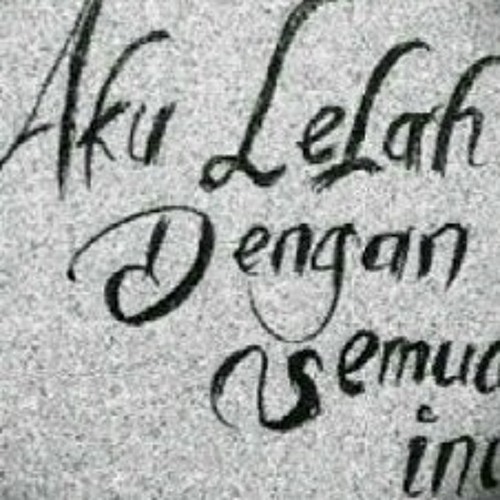 Aku LeLah
Dengan
semua